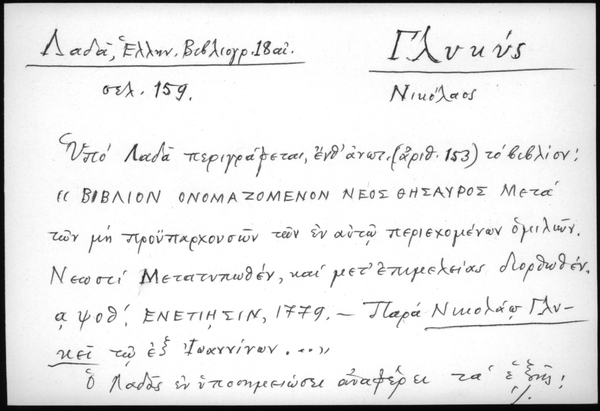 Λαδᾶ, Ἑλλην. Βιβλιογρ. 18 αἰ.
Γλυκύς
σελ. 159.
Νικόλαος
Ὑπό Λαδᾶ περιγράφεται, ἔνθ' ἀνωτ. (ἀριθ. 153) τό βιβλίον:
"ΒΙΒΛΙΟΝ ΟΝΟΜΑΖΟΜΕΝΟΝ ΝΕΟΣ ΘΗΣΑΥΡΟΣ Μετά
τῶν μή προϋπαρχουσῶν τῶν ἐν αὐτῷ περιεχομένων ὁμιλιῶν.
Νεωστί Μετατυπωθέν, καί μετ' ἐπιμελείας διορθωθέν.
αψοθ'. ΕΝΕΤΙΗΣΙΝ, 1779. – Παρά Νικολάῳ Γλυ-
κεῖ τῷ ἐξ Ἰωαννίνων...»
Ὁ Λαδᾶς ἐν ὑποσημειώσει ἀναφέρει τά ἑξῆς: